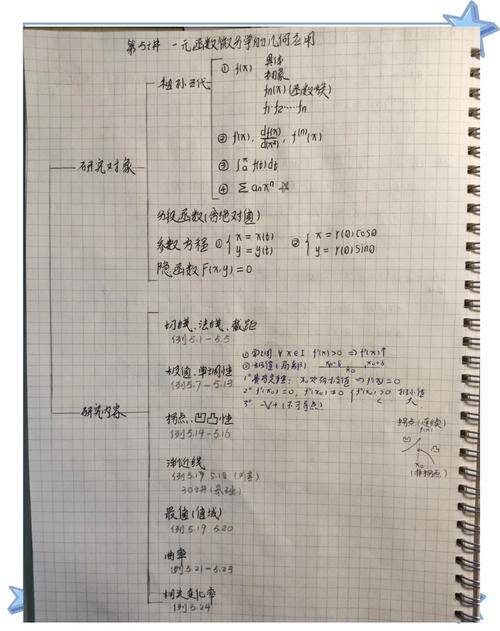 第5讲 一元函数微分学的几何应用
研究对象
祖孙三代
① f(x) 具体
抽象
fn(x)(函数族)
f1·f2·····fn
② f(x), df(x)/d(x²), f⁽ⁿ⁾(x)
③ ∫ₐˣ f(t)dt
④ ∑ anxⁿ
分段函数(含绝对值)
参数方程 ① { x = x(t) y = y(t) ② { x = r(θ)cosθ y = r(θ)sinθ
隐函数 F(x,y) = 0
研究内容
切线、法线、截距
例5.1-5.5
极值、单调性
例5.7-5.13
① 单调 ∀x∈I f'(x)>0 ⇒ f(x)↑
② 极值(局部) x0-δ x0 x0+δ
2° f'(x0)=0, f''(x0)≠0 { f''(x0)>0 极小值
< 大
拐点、凹凸性
例5.14-5.16
拐点(连续)
f(x)
x0
渐近线
例5.17 5.18
30讲(基础)
最值(值域)
例5.19 5.20
曲率
例5.21-5.23
相关变化率
例5.24